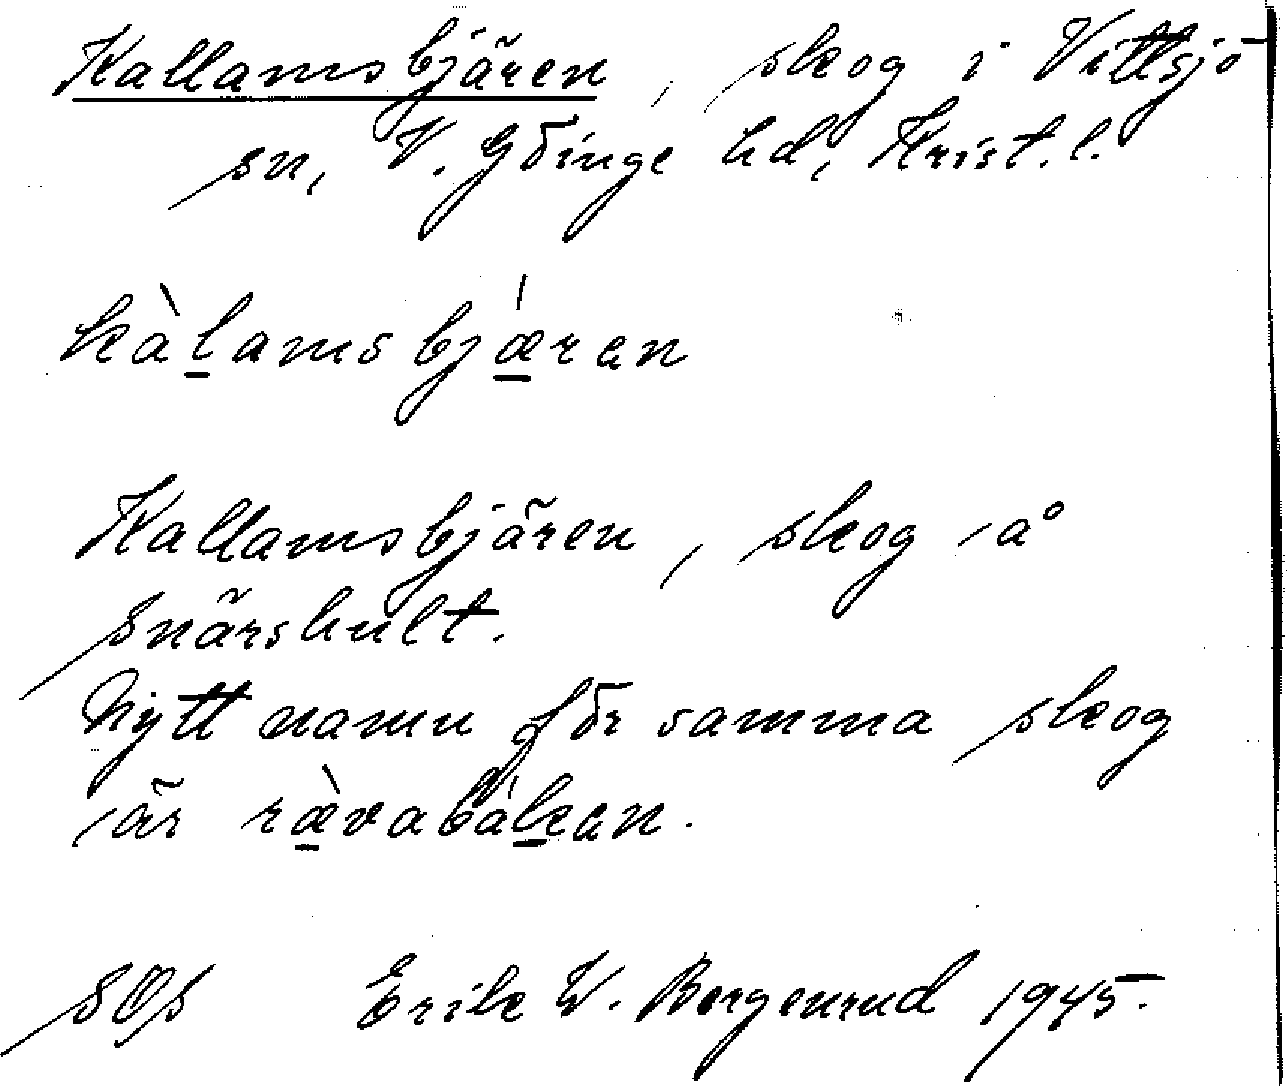 Kallamsbjären, skog i Vittsjö
sn, V. Göinge hd, Krist. l.
kàlamsbjǽren
Kallamsbjären, skog å
Snärshult.
Nytt namn för samma skog
är rævabálken.
SOS Erik W. Borgenrud 1945.